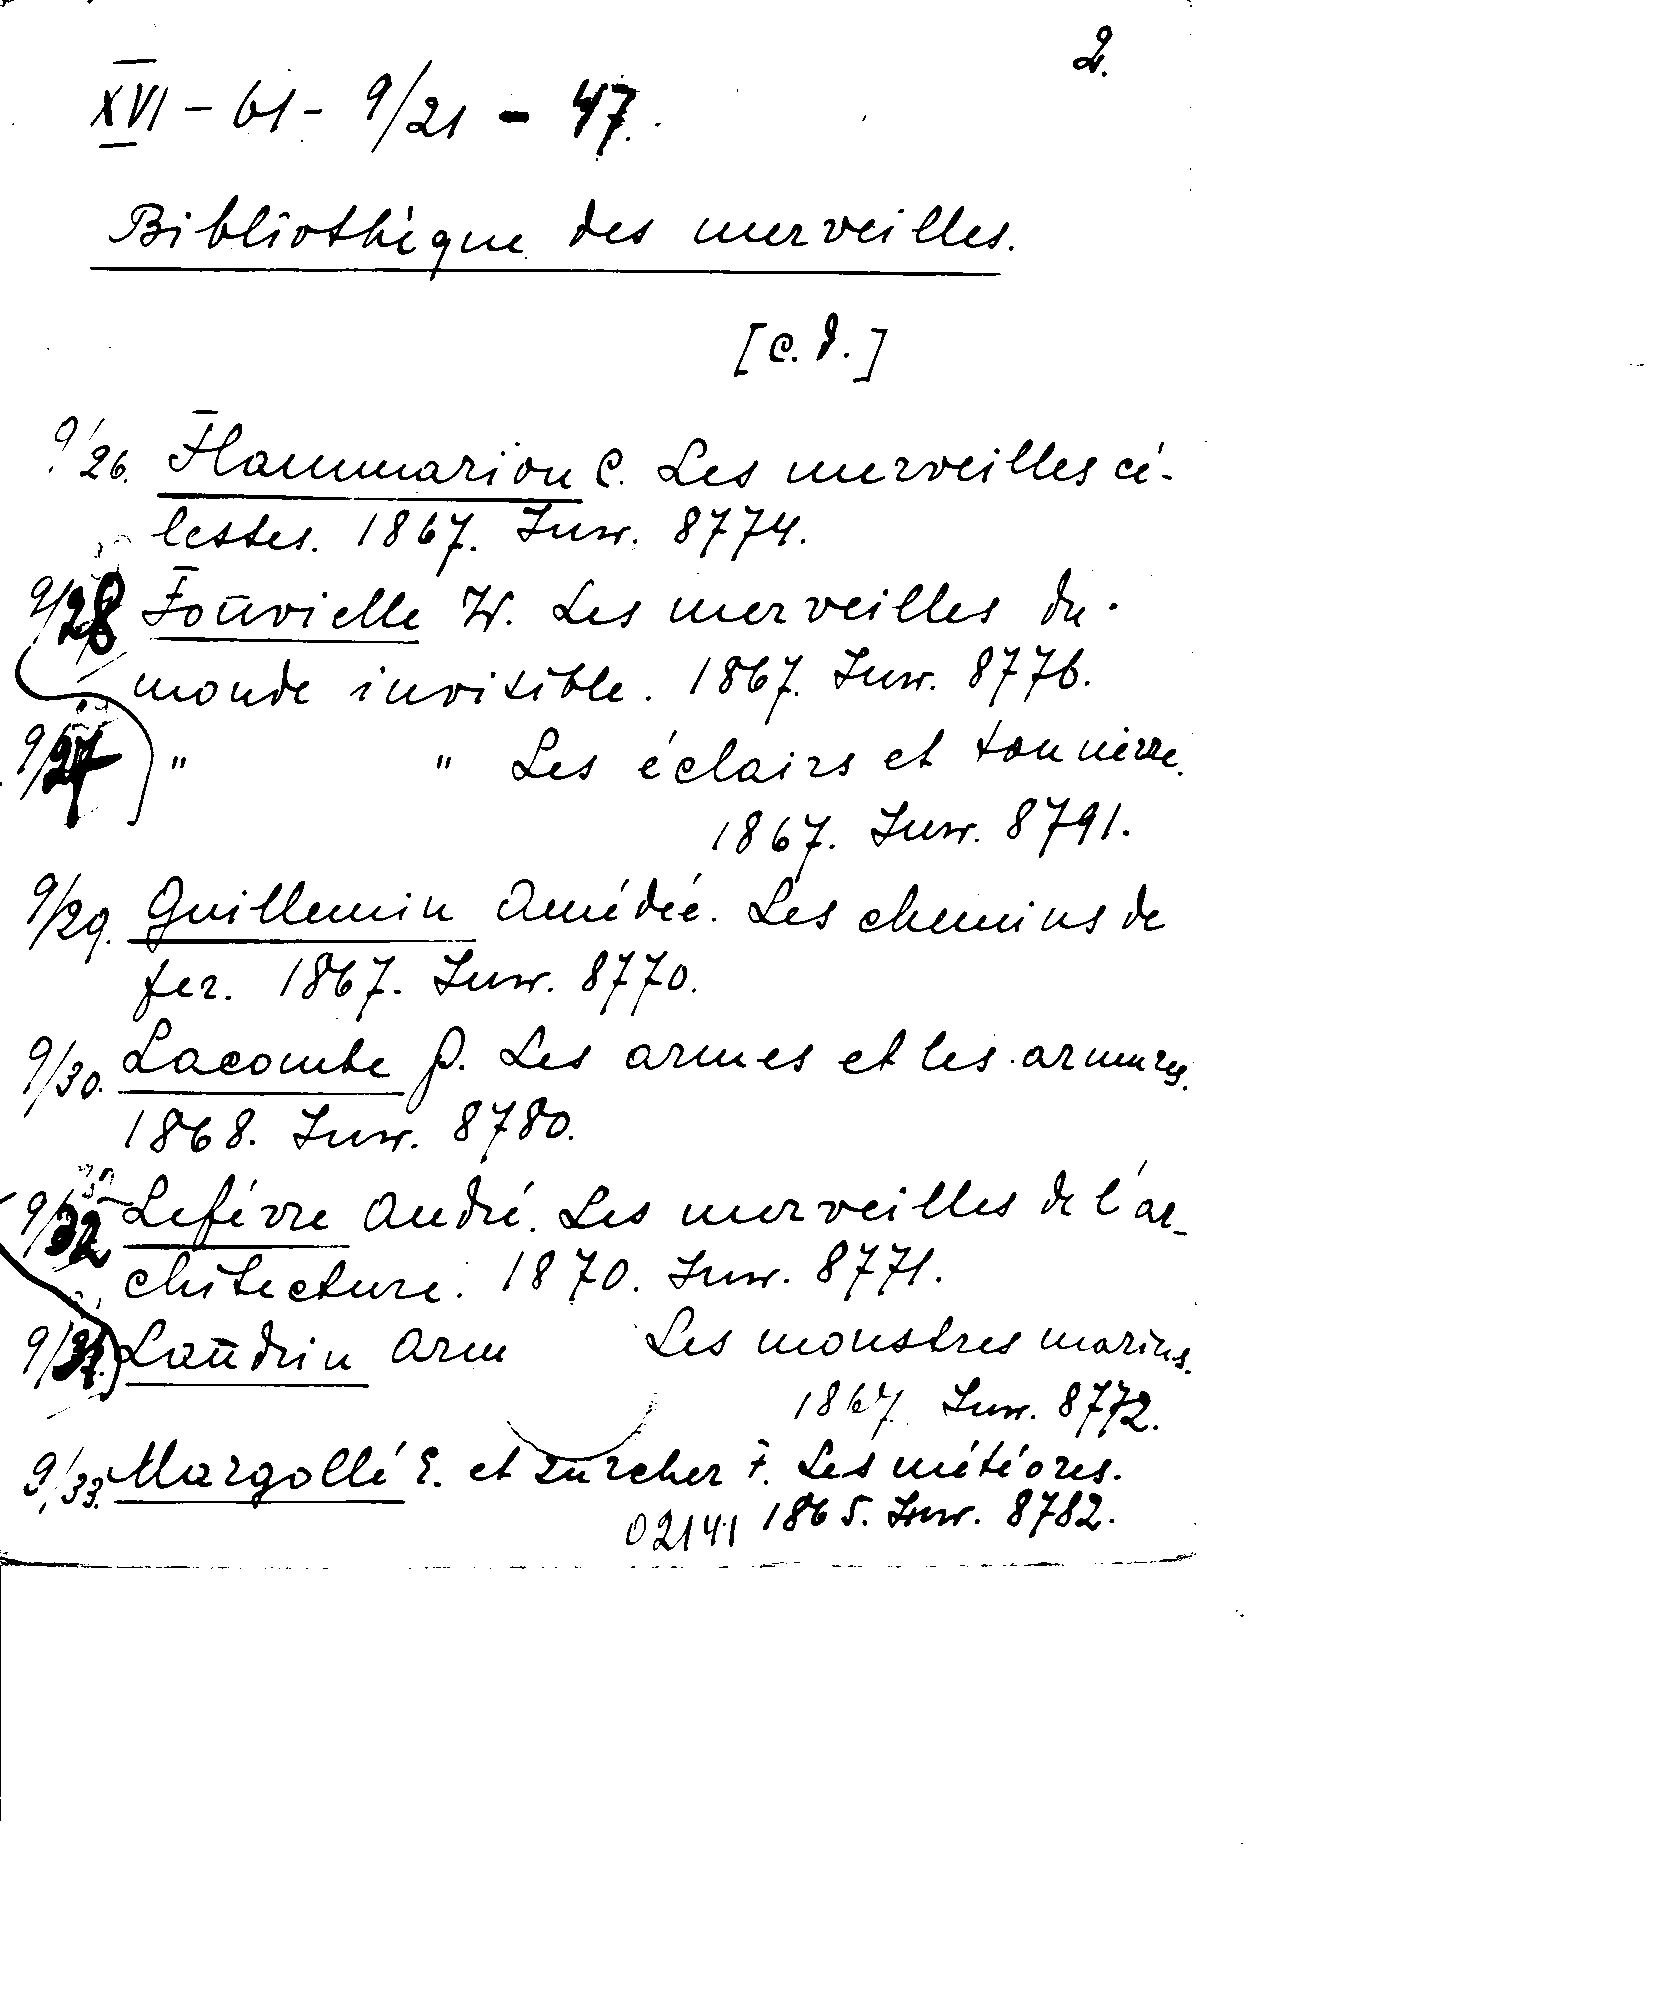 2.
XVI – 61 – 9/21 – 47.
Bibliothèque des merveilles.
[c.d.]
9/26. Flammarion C. Les merveilles cé-
lestes. 1867. Inw. 8774.
9/28 Fonvielle W. Les merveilles du
monde invisible. 1867. Inw. 8776.
9/27 " " Les éclairs et tonnerre.
1867. Inw. 8791.
9/29. Guillemin Amédée. Les chemins de
fer. 1867. Inw. 8770.
9/30. Lacombe P. Les armes et les armures.
1868. Inw. 8780.
9/32 Lefévre André. Les merveilles de l'ar-
chitecture. 1870. Inw. 8771.
9/31. Landrin Arm Les monstres marins.
1867. Inw. 8772.
9/33. Margollé E. et Zurcher F. Les météores.
02141 1865. Inw. 8782.